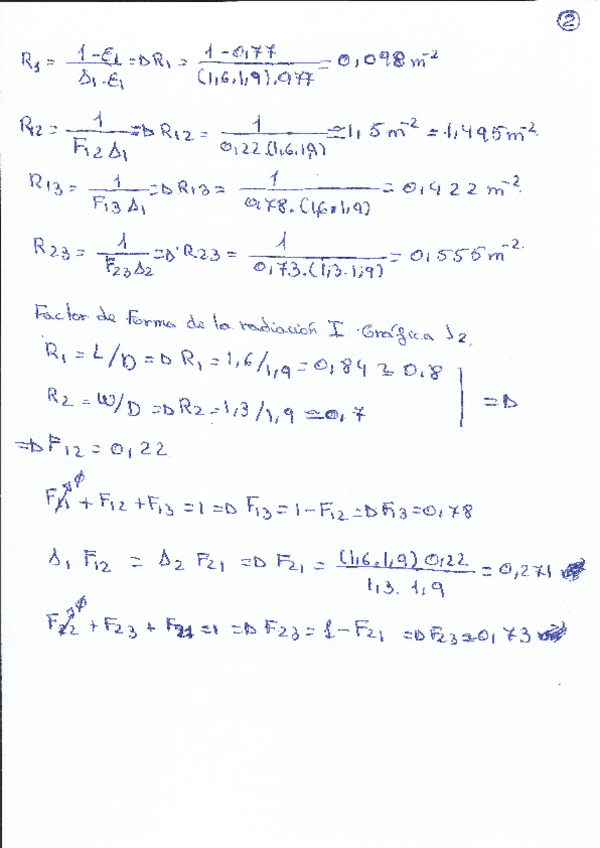 2
R1 = (1-ε1)/(A1·ε1) => R1 = (1-0,77)/((1,6·1,9)·0,77) = 0,098 m⁻²
R12 = 1/(F12 A1) => R12 = 1/(0,22·(1,6·1,9)) = 1,5 m⁻² = 1,495 m⁻².
R13 = 1/(F13 A1) => R13 = 1/(0,78·(1,6·1,9)) = 0,422 m⁻².
R23 = 1/(F23 A2) => R23 = 1/(0,73·(1,3·1,9)) = 0,555 m⁻².
Factor de forma de la radiación I Gráfica 12.
R1 = L/D => R1 = 1,6/1,9 = 0,84 ≃ 0,8
R2 = W/D => R2 = 1,3/1,9 ≃ 0,7 | =>
=> F12 = 0,22
F11↗0 + F12 + F13 = 1 => F13 = 1 - F12 => F13 = 0,78
A1 F12 = A2 F21 => F21 = ((1,6·1,9) 0,22)/(1,3·1,9) = 0,271
F22↗0 + F23 + F21 = 1 => F23 = 1 - F21 => F23 = 0,73